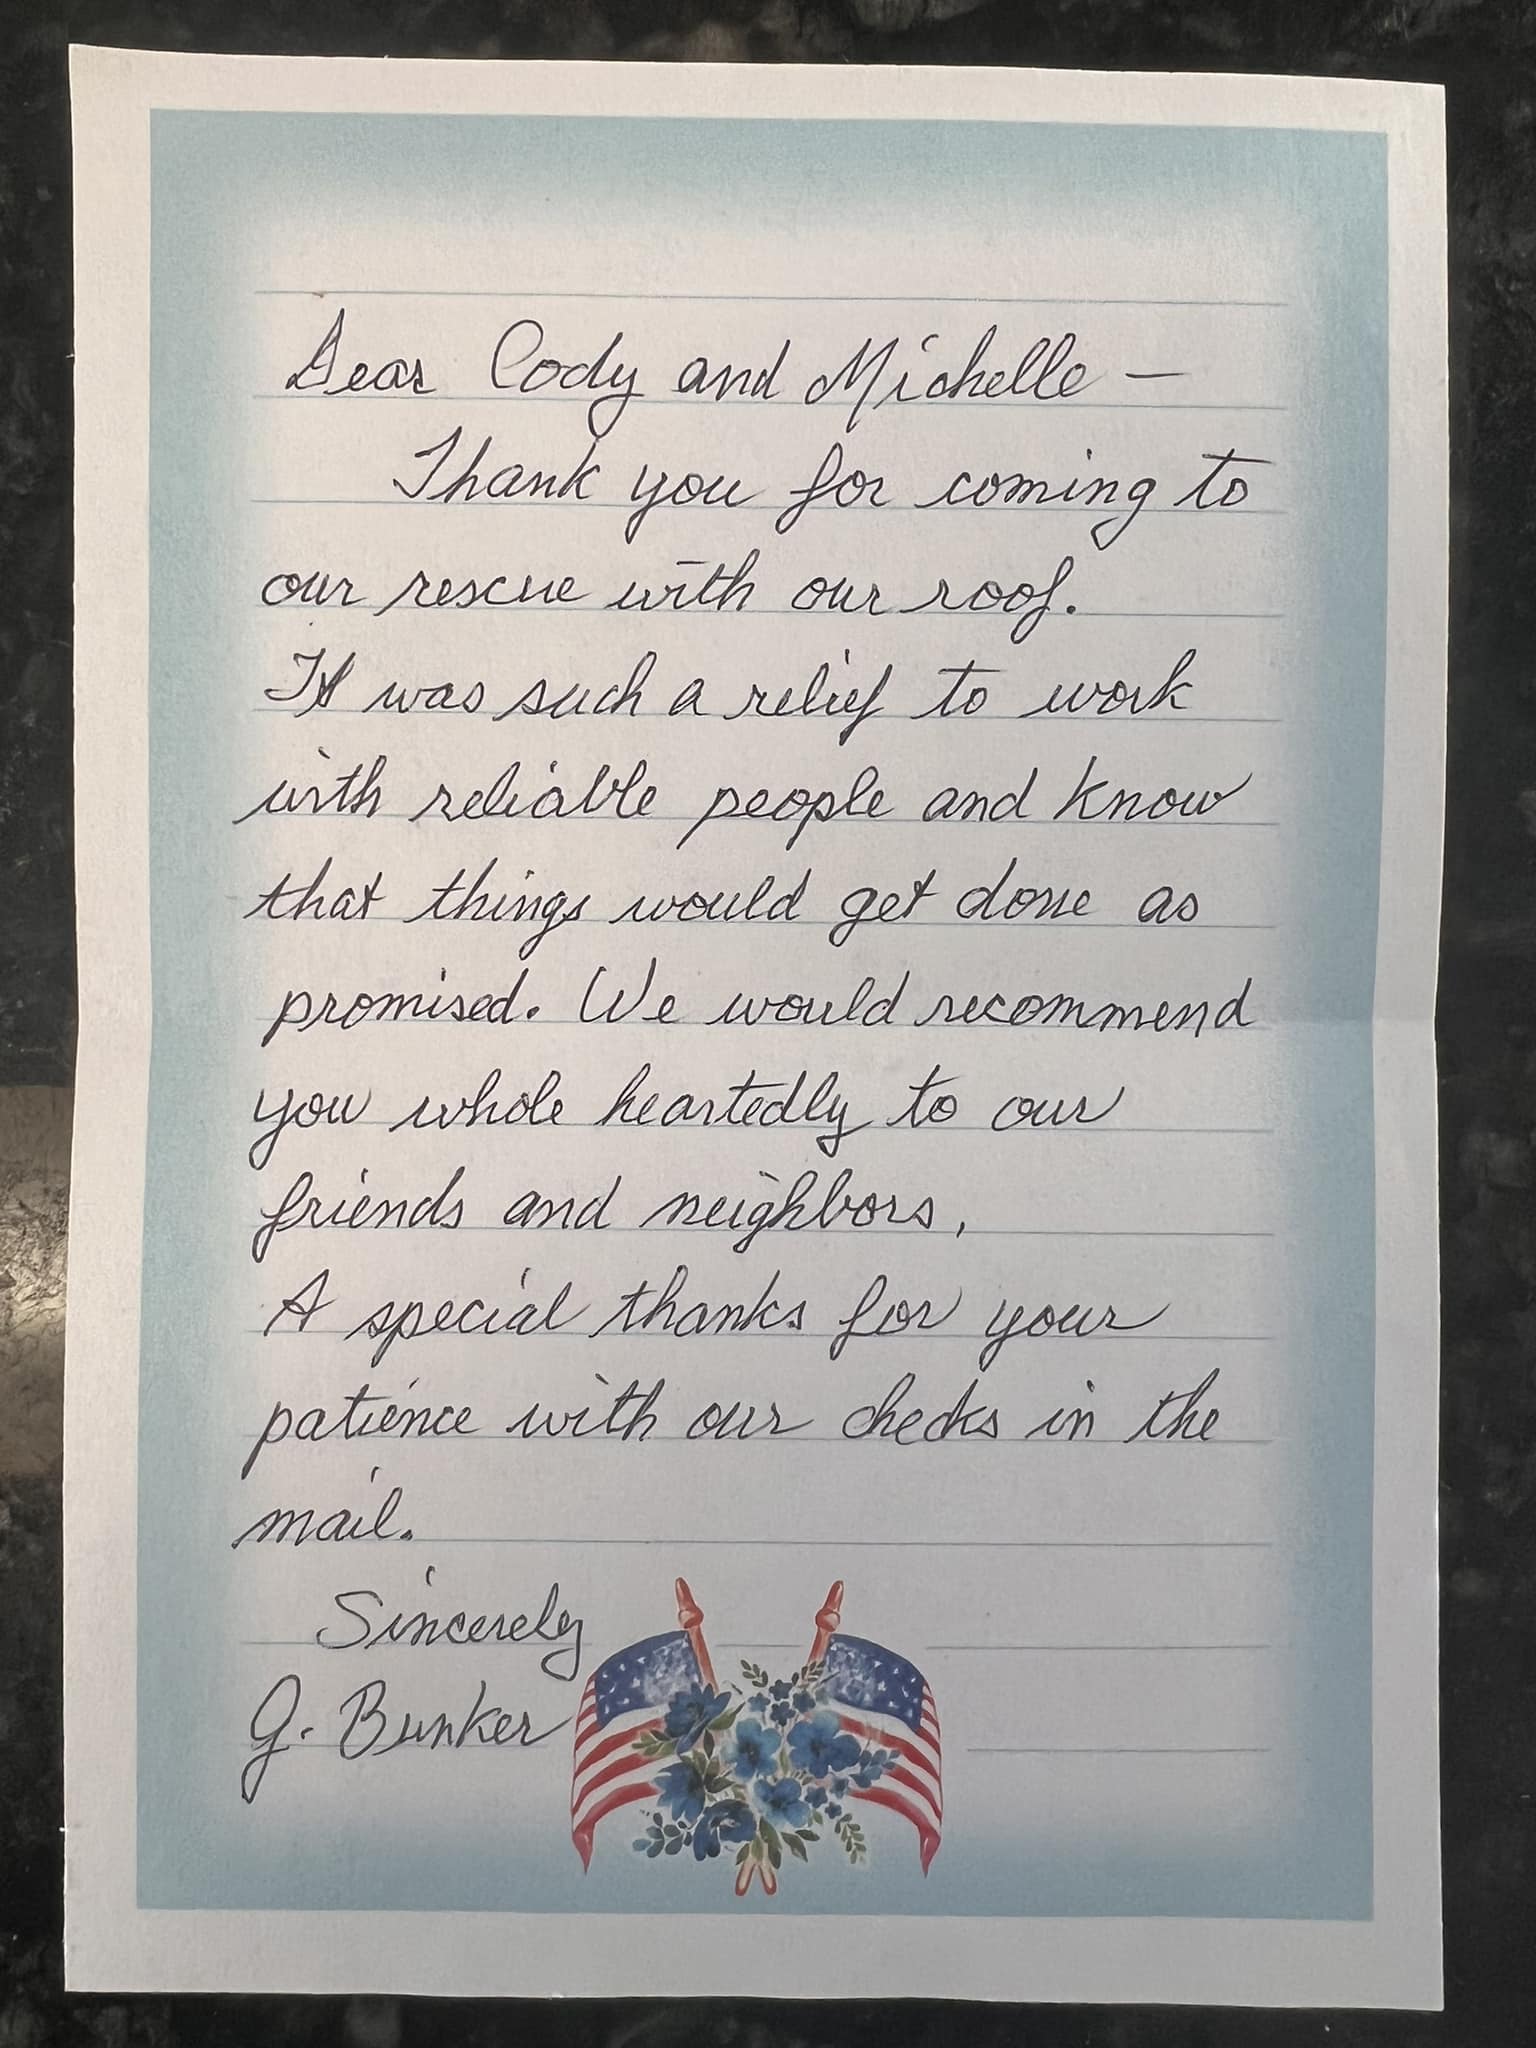 Dear Cody and Michelle –
Thank you for coming to
our rescue with our roof.
It was such a relief to work
with reliable people and know
that things would get done as
promised. We would recommend
you whole heartedly to our
friends and neighbors,
A special thanks for your
patience with our checks in the
mail.
Sincerely
G. Bunker